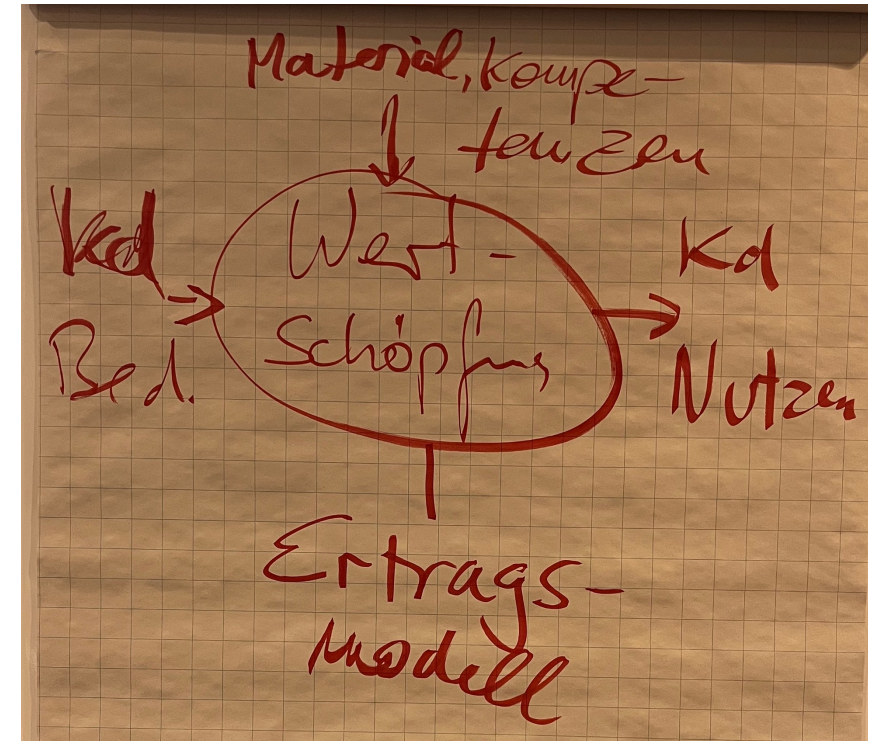 Material, Kompe-
tenzen
Kd
Bed.
Wert-
Schöpfung
Kd
Nutzen
Ertrags-
modell